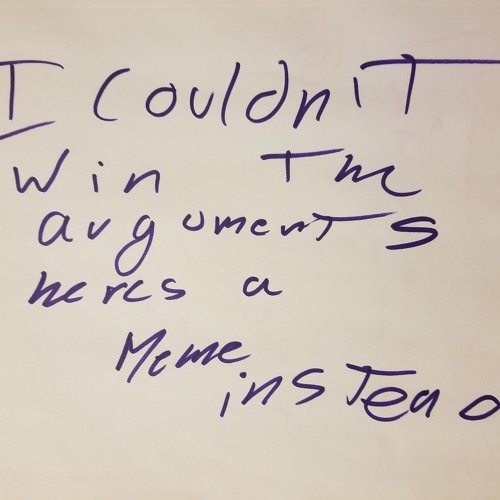 I couldn't
win the
arguments
heres a
Meme
instead